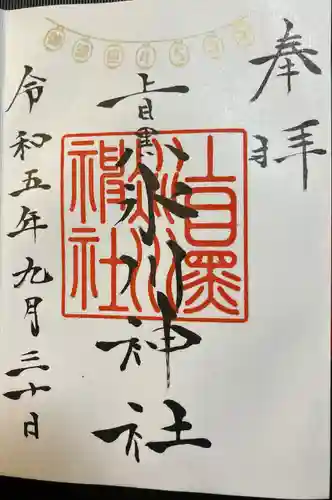 奉拝
上目黒氷川神社
令和五年九月三十日
上目黒
氷川神社